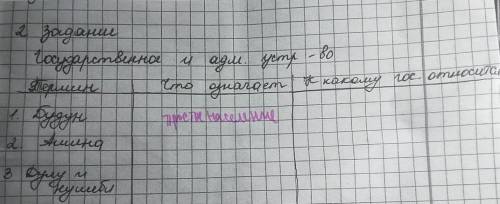 2 задание
Государственное и адм. устр-во
Термин Что означает К какому гос. относится
1. Будун простое население
2. Ашина
3 Дулу и
нушиби